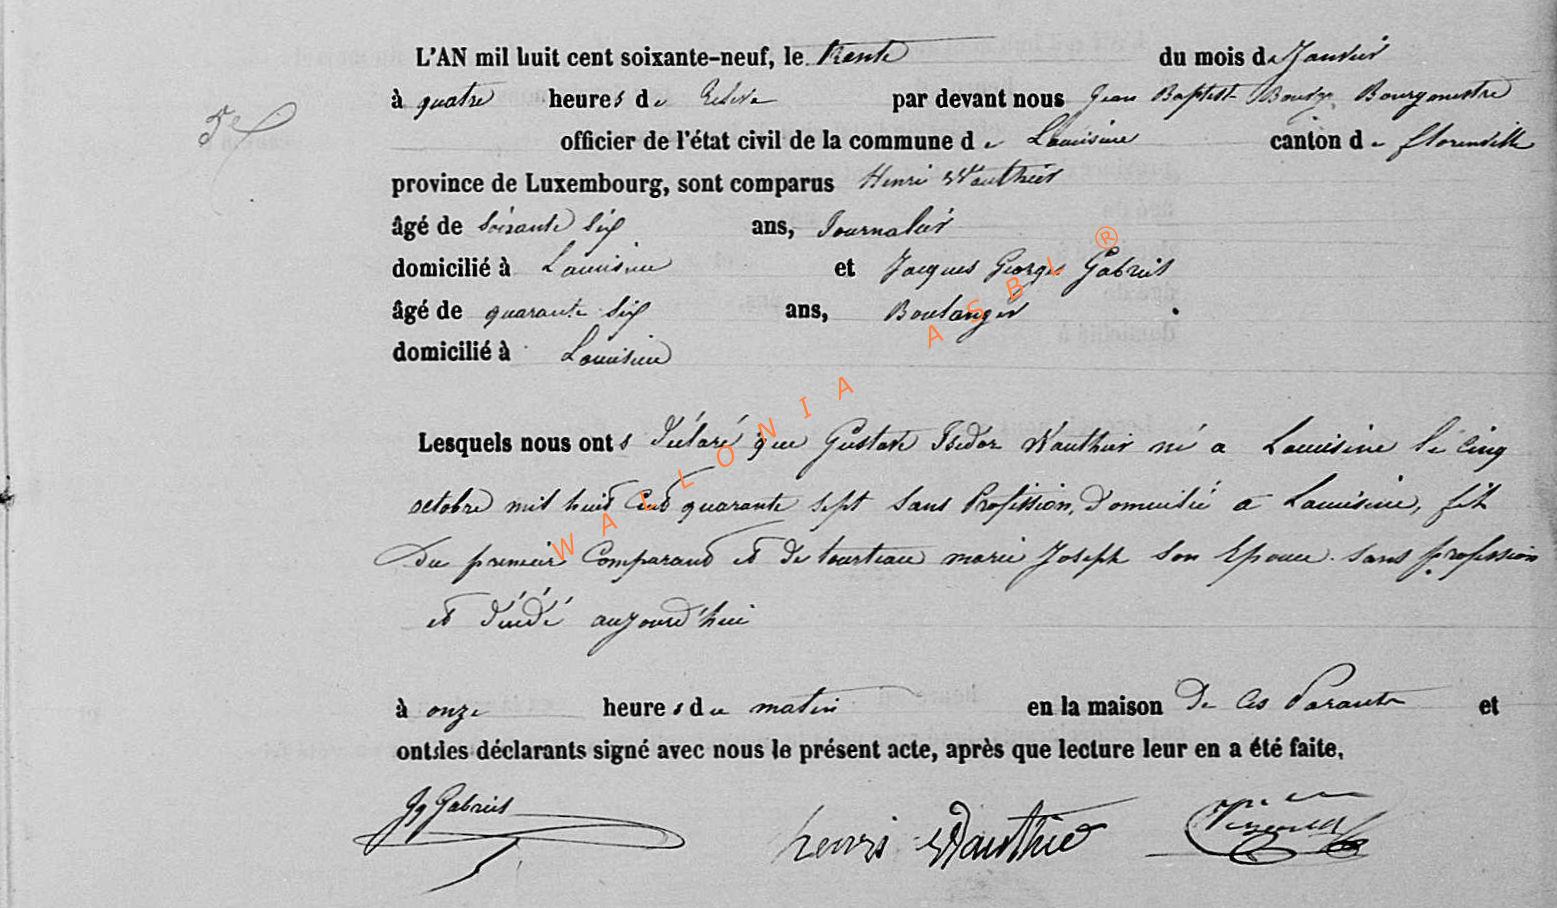 L'AN mil huit cent soixante-neuf, le trente du mois de Janvier
à quatre heures de par devant nous Jean Baptist Bourgmestre
5e
officier de l'état civil de la commune de Lacuisine canton de florenville
province de Luxembourg, sont comparus Henri Wauthier
âgé de soixante six ans, Journalier
domicilié à Lacuisine et Jacques Georges Gabriel
âgé de quarante six ans, Boulanger
domicilié à Lacuisine
Lesquels nous onts déclaré que Gustave Isidor Wauthier né a Lacuisine le cinq
octobre mil huit Cent quarante sept sans Profession, Domicilié a Lacuisine, fils
Du premier Comparant et de tourteau marie Joseph son Epouse sans profession
et décédé aujourd'hui
à onze heures du matin en la maison De Ces Parants et
ont les déclarants signé avec nous le présent acte, après que lecture leur en a été faite.
Jg Gabriel henri Wauthier
WALLONIA ASBL ®